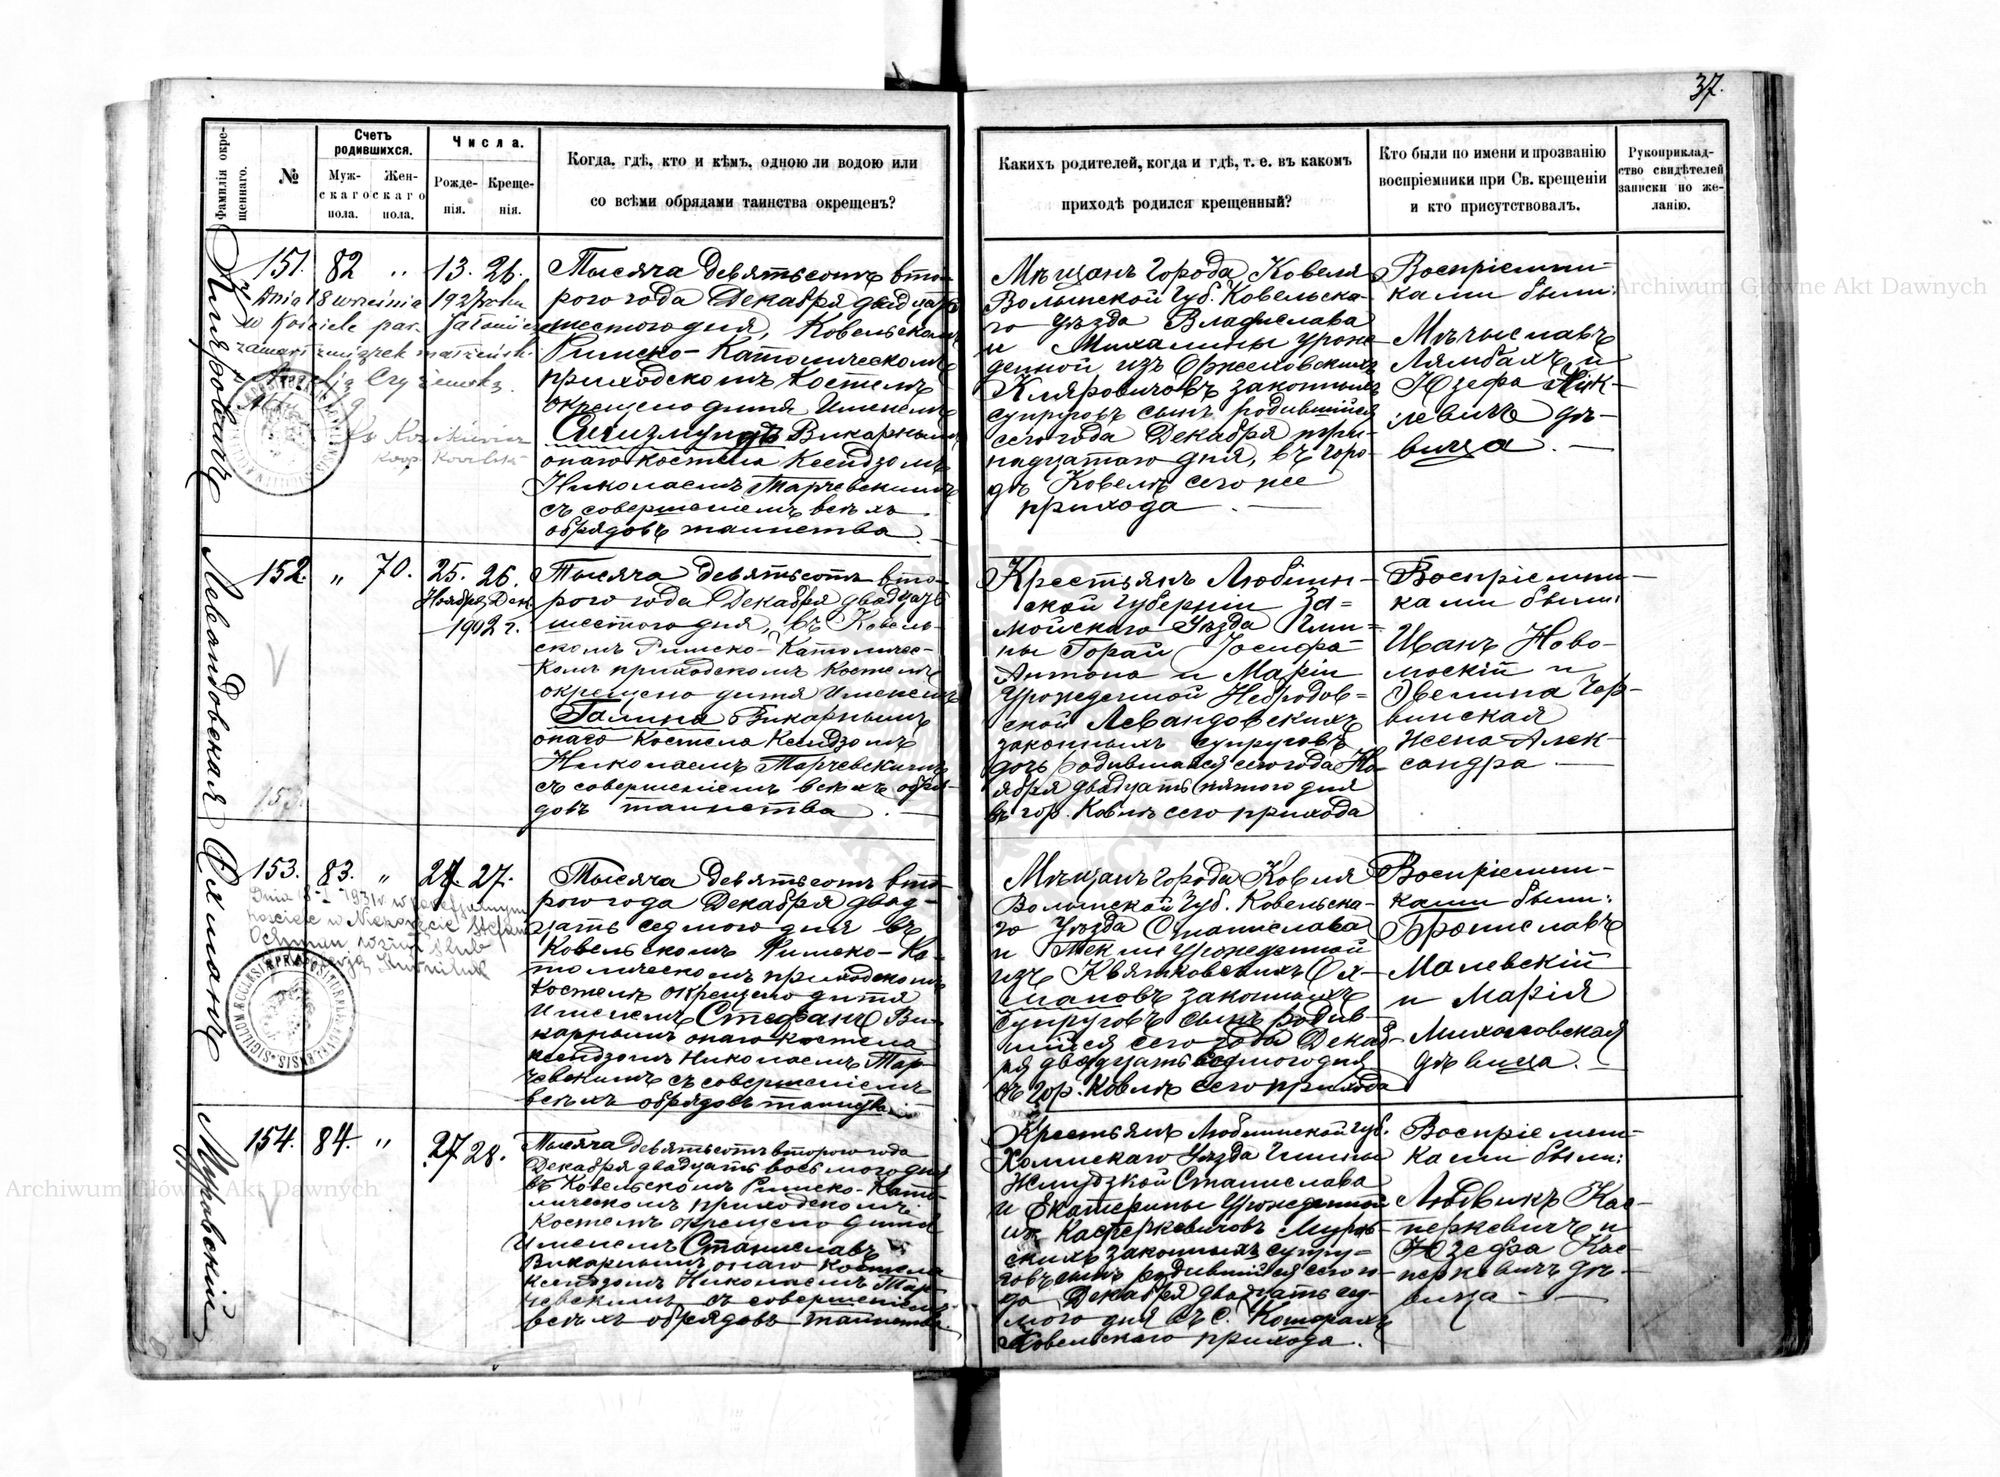 37.
Фамилія окре-
щеннаго.
№
Счетъ
родившихся.
Муж-
скаго
пола.
Жен-
скаго
пола.
Числа.
Рожде-
нія.
Креще-
нія.
Когда, гдѣ, кто и кѣмъ, одною ли водою или
со всѣми обрядами таинства окрещенъ?
Какихъ родителей, когда и гдѣ, т. е. въ какомъ
приходѣ родился крещенный?
Кто были по имени и прозванію
воспріемники при Св. крещеніи
и кто присутствовалъ.
Рукоприклад-
ство свидѣтелей
записки по же-
ланію.
Кляровичъ
151. 82 " 13. 26.
Dnia 18 września 1927 roku
w Kościele par.
zawarł związek małżeński
Тысяча девятьсотъ вто-
рого года Декабря двадцать
шестого дня, въ Ковельскомъ
Римско-Католическомъ
приходскомъ костелѣ
окрещено дитя именемъ
Сигизмундъ Викарнымъ
онаго костела Ксендзомъ
Николаемъ Тарчевскимъ
съ совершеніемъ всѣхъ
обрядовъ таинства.
Мѣщанъ города Ковеля
Волынской Губ. Ковельска-
го уѣзда Владислава
и Михалины урож-
денной изъ Оржеховскихъ
Кляровичовъ законныхъ
супруговъ сынъ родившійся
сего года Декабря три-
надцатаго дня, въ горо-
дѣ Ковелѣ сего же
прихода.
Воспріемни-
ками были:
Мѣчыславъ
Лямбахъ и
Юзефа
дѣ-
вица.
Левандовская
152. " 70. 25. 26.
Ноября Дек.
1902 г.
Тысяча девятьсотъ вто-
рого года Декабря двадцать
шестого дня, въ Ковель-
скомъ Римско-Католичес-
комъ приходскомъ костелѣ
окрещено дитя именемъ
Галина Викарнымъ
онаго костела Ксендзомъ
Николаемъ Тарчевскимъ
съ совершеніемъ всѣхъ обря-
довъ таинства.
Крестьянъ Люблин-
ской губерніи За-
мойскаго уѣзда Гми-
ны Горай Іосифа
Антона и Маріи
урожденной Небродов-
ской Левандовскихъ
законныхъ супруговъ
дочь родившаяся сего года Но-
ября двадцать пятого дня
въ гор. Ковлѣ сего прихода
Воспріемни-
ками были:
Иванъ Ново-
мокій и
Эвелина Чер-
винская
жена Алек-
сандра
Охманъ
153. 83. " 27. 27.
Stefan
Ochman
SIGILLUM ECCLESIÆ PRÆPOSITURALIS KOVELENSIS
Тысяча девятьсотъ вто-
рого года Декабря двад-
цать седмого дня въ
Ковельскомъ Римско-Ка-
толическомъ приходскомъ
костелѣ окрещено дитя
именемъ Стефанъ Ви-
карнымъ онаго костела
ксендзомъ Николаемъ Тар-
чевскимъ съ совершеніемъ
всѣхъ обрядовъ таинства
Мѣщанъ города Ковля
Волынской Губ. Ковельска-
го уѣзда Станислава
и Теклы урожденной
изъ Квятковскихъ Ох-
мановъ законныхъ
супруговъ сынъ родив-
шійся сего года Декаб-
ря двадцать седмого дня
въ гор. Ковлѣ сего прихода
Воспріемни-
ками были:
Брониславъ
Малевскій
и Марія
Михаловская
дѣвица.
Муравскій
154. 84. " 27 28.
Тысяча девятьсотъ второго года
Декабря двадцать восьмого дня
въ Ковельскомъ Римско-Като-
лическомъ приходскомъ
костелѣ окрещено дитя
именемъ Станиславъ
Викарнымъ онаго костела
ксендзомъ Николаемъ Тар-
чевскимъ съ совершеніемъ
всѣхъ обрядовъ таинства
Крестьянъ Люблинской губ.
Холмскаго уѣзда Гмины
Жмудзкой Станислава
и Екатерины урожденной
изъ Касперкевичовъ Мурав-
скихъ законныхъ супру-
говъ сынъ родившійся сего го-
да Декабря двадцать сед-
мого дня въ с.
Ковельскаго прихода.
Воспріемни-
ками были:
Людвикъ Кас-
перкевичъ и
Юзефа Кас-
перкевичъ дѣ-
вица
Archiwum Główne Akt Dawnych
Archiwum Główne Akt Dawnych